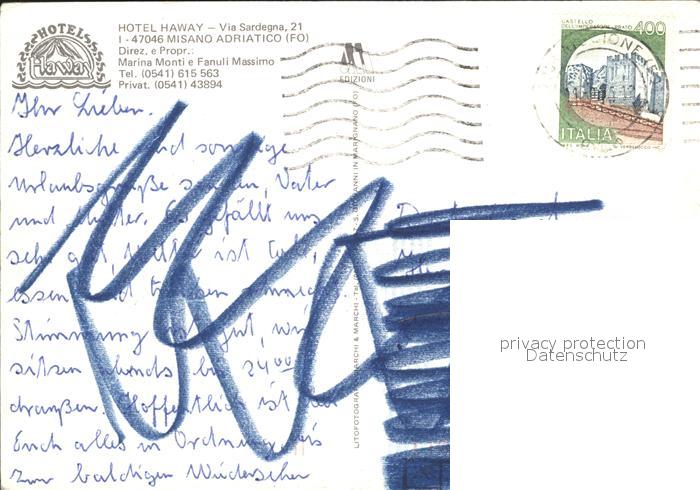 HOTELS
Haway
HOTEL HAWAY – Via Sardegna, 21
I - 47046 MISANO ADRIATICO (FO)
Direz. e Propr.:
Marina Monti e Fanuli Massimo
Tel. (0541) 615 563
Privat. (0541) 43894
EDIZIONI
CASTELLO
DELL'IMPERATORE - PRATO
400
ITALIA
Ihr Lieben.
Herzliche und sonnige
Urlaubsgrüße senden, Vater
und Mutter. Es gefällt uns
sehr gut, Wetter ist gut,
essen und trinken
Stimmung ist gut, wir
sitzen abends bis 24 00
draußen. Hoffentlich ist bei
Euch alles in Ordnung bis
zum baldigen Wiedersehen
privacy protection
Datenschutz